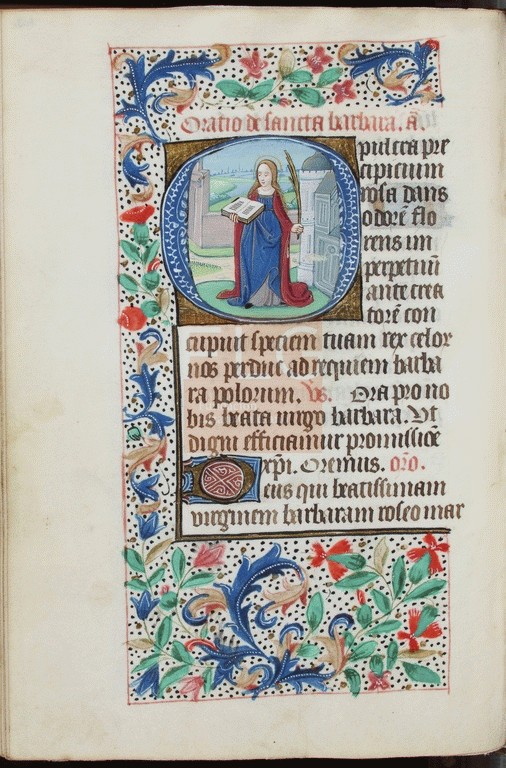 Oratio de sancta barbara. añ.
O pulcra pre
cipuum
rosa dans
odorē flo
rens in
perpetuū
ante crea
torē con
cupiuit speciem tuam rex celor
nos perduc ad requiem barba
ra polorum. Vs. Ora pro no
bis beata uirgo barbara. Vt
digni efficiamur promissiōē
xp̄i. Oremus. orō.
Deus qui beatissimam
virginem barbaram roseo mar